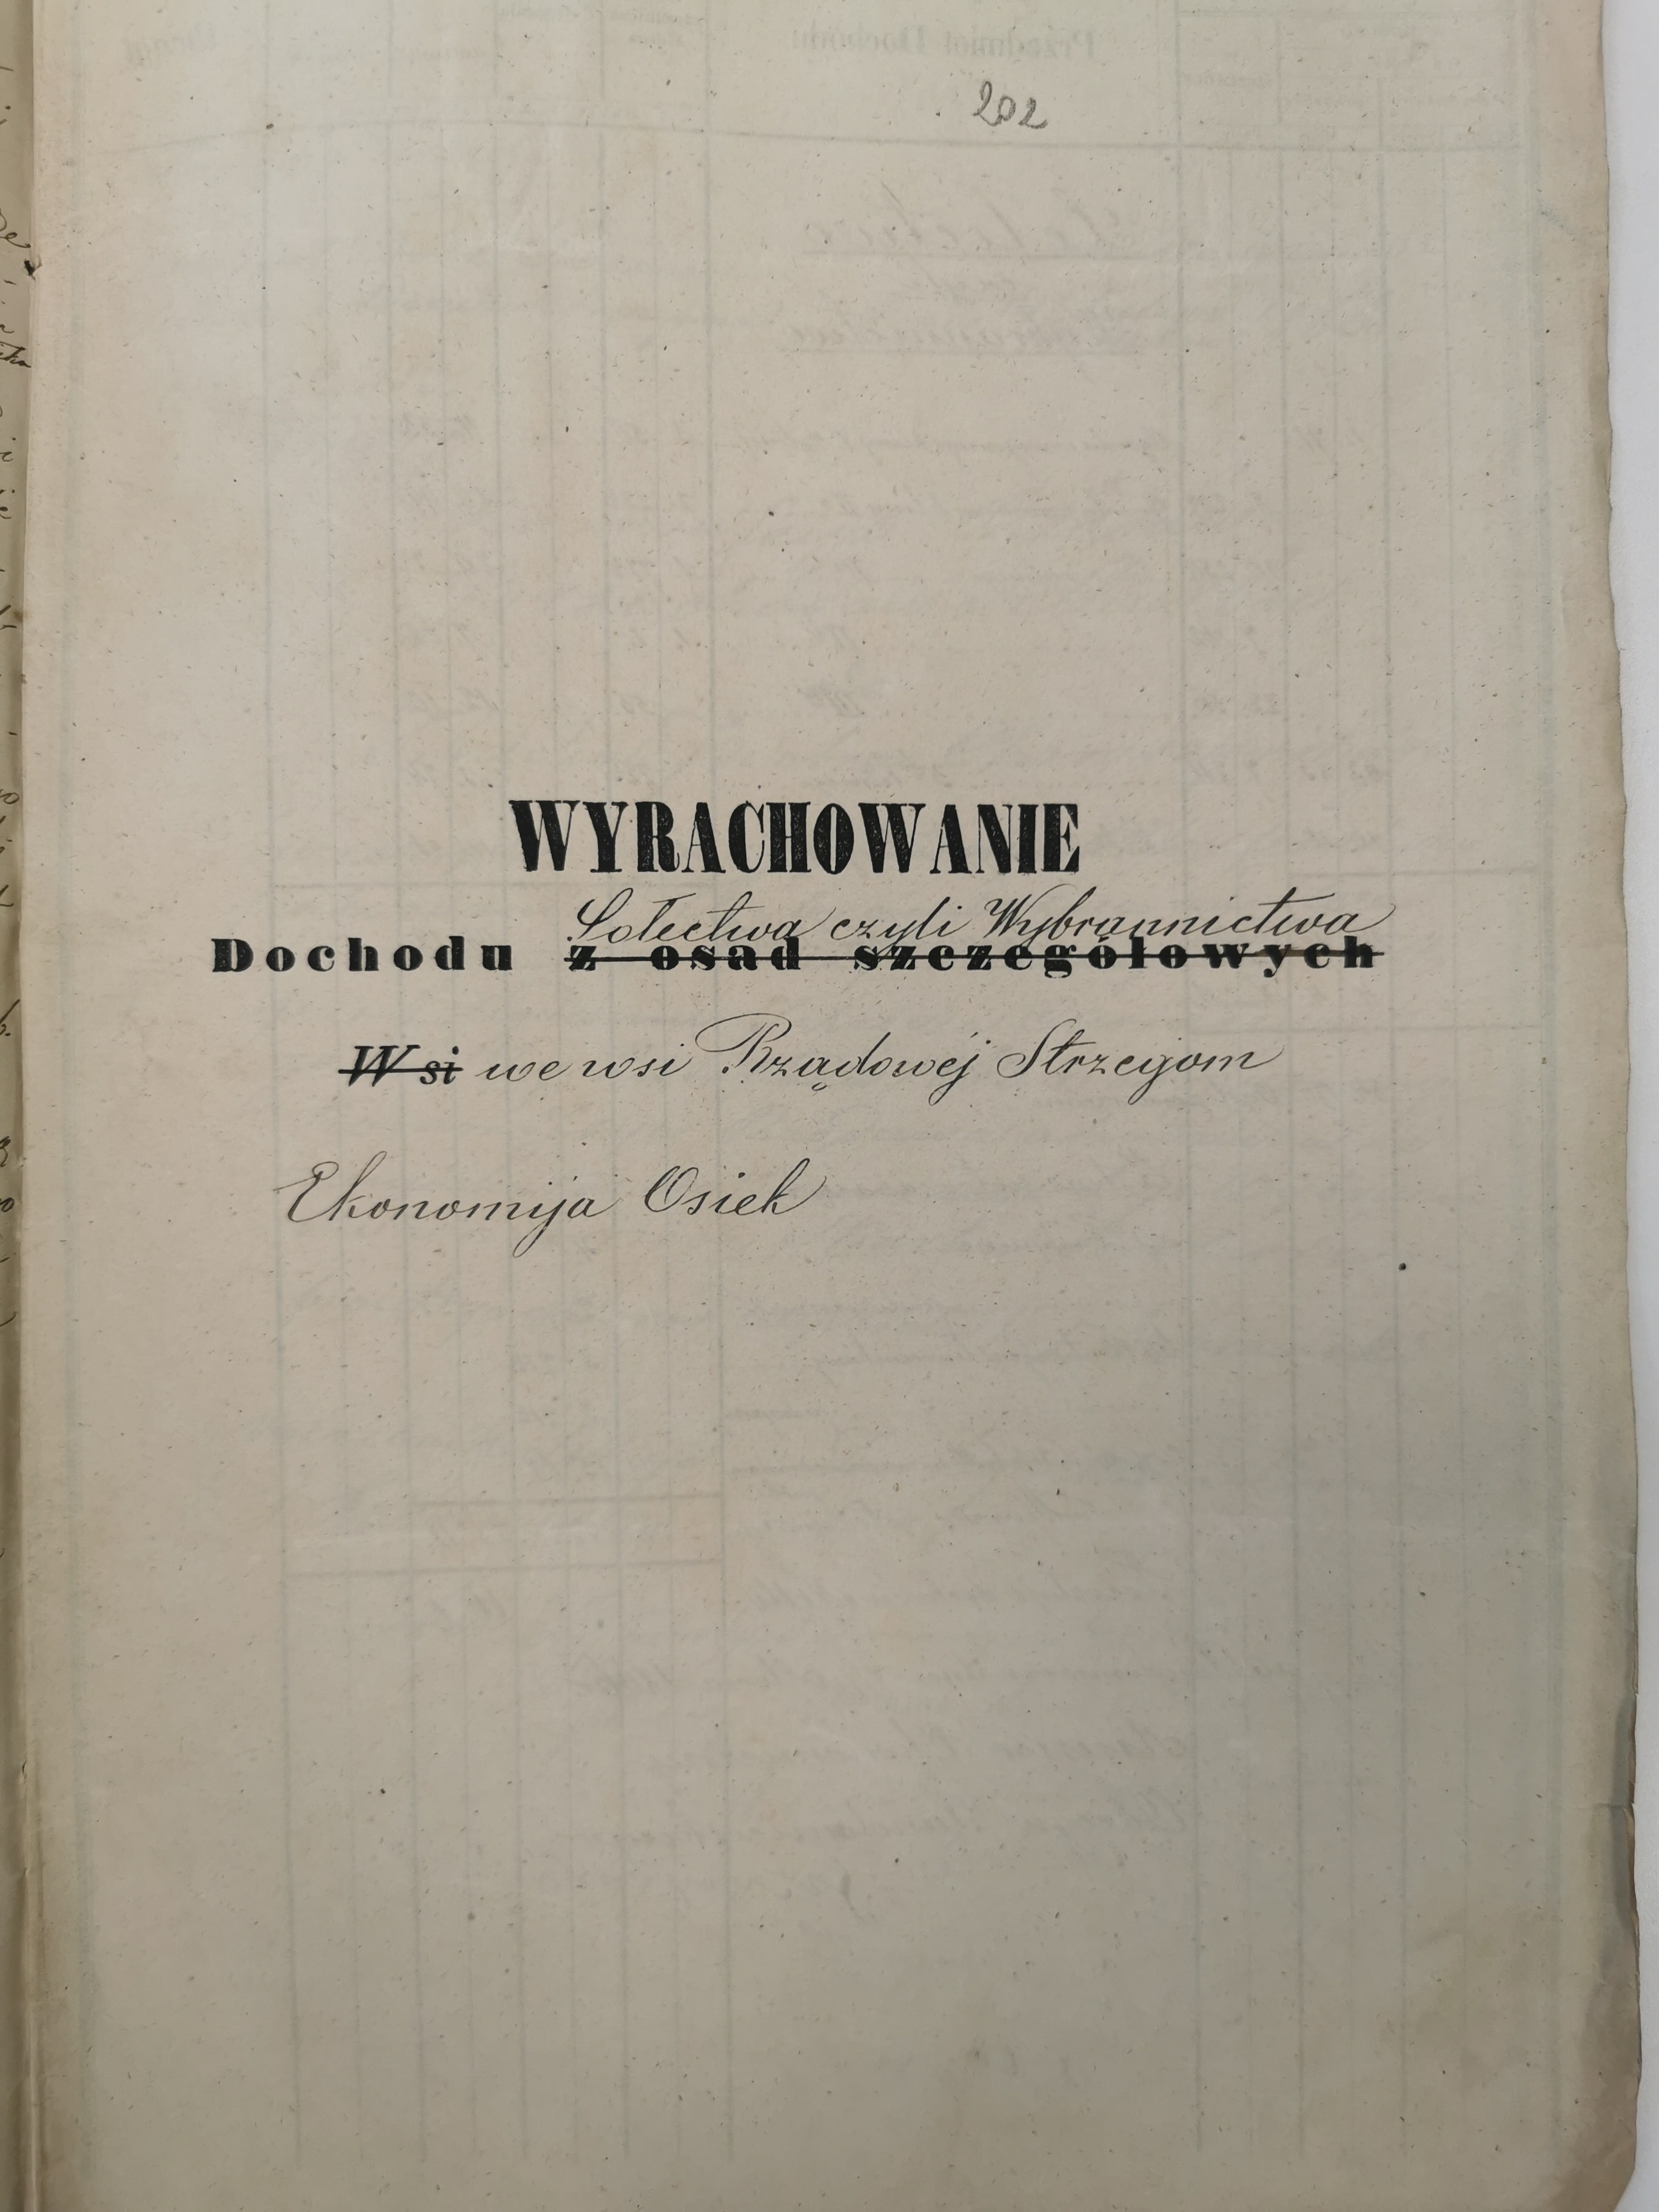 202
WYRACHOWANIE
Sołectwa czyli Wybrannictwa
Dochodu z osad szczegółowych
Wsi we wsi Rządowéj Strzegom
Ekonomija Osiek